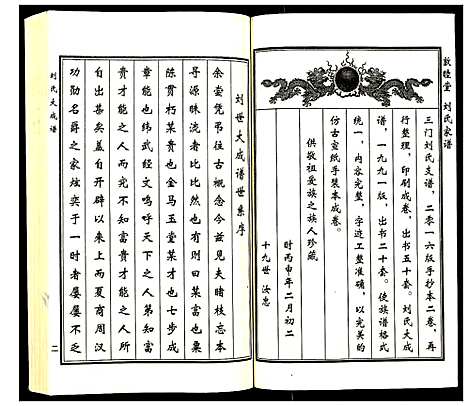 敦睦堂 刘氏家谱
三门刘氏支谱，二零一六版手抄本二卷，再
行整理，印刷成卷，出书五十套。刘氏大成
谱，一九九一版，出书二十套。使族谱格式
统一，内容完整，字迹工整准确，以完美的
仿古宣纸手装本成卷。
供敬祖爱族之族人珍藏
时丙申年二月初二
十九世 汝忠
刘世大成谱世系序
余尝凭吊往古概念今兹见夫睹枝忘本
寻源昧流者比比然也有则曰某富也粟
陈贯朽某贵也金马玉堂某才也七步成
章能也纬武经文呜呼天下之人第知富
贵才能之人而究不知富贵才能之人所
自出甚矣盖自开辟以来上而两夏商周汉
功勋名爵之家炫奕于一时者屡屡不乏
刘氏大成谱
二